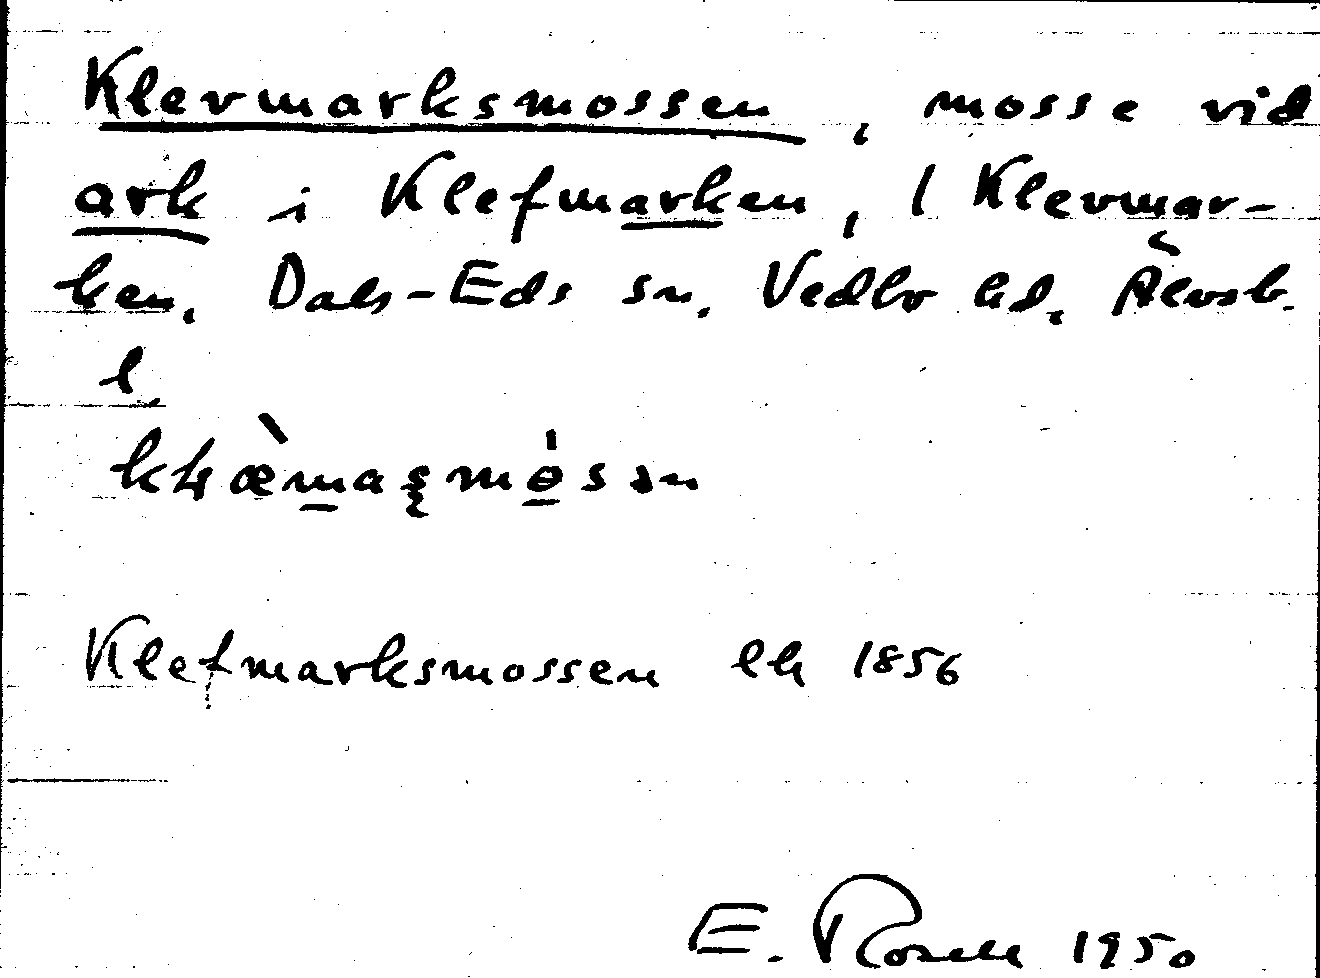 Klevmarksmossen, mosse vid
ark i Klefmarken, / Klevmar-
ken, Dals-Eds sn. Vedbo hd, Älvsb.
l.
Klefmarksmossen lk 1856
E. Rosell 1950